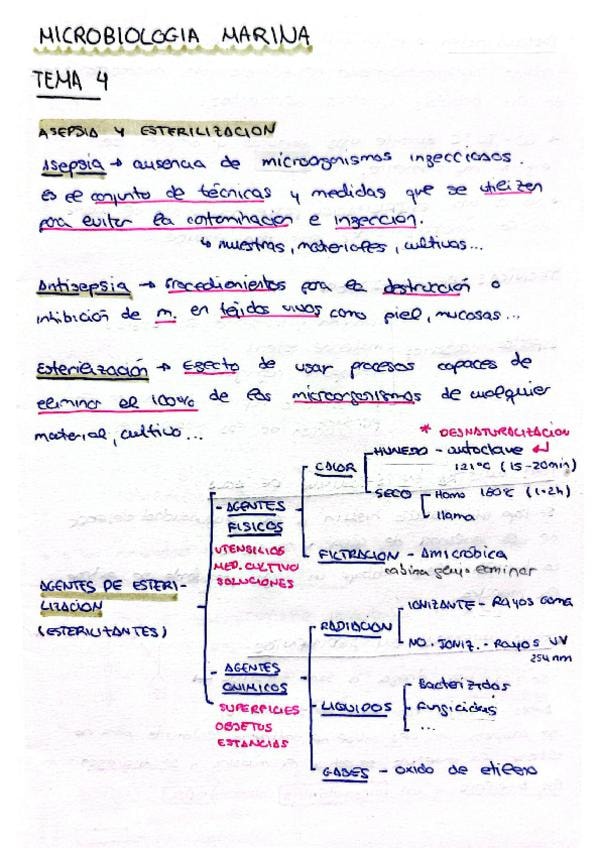 MICROBIOLOGIA MARINA
TEMA 4
ASEPSIA Y ESTERILIZACION
Asepsia → ausencia de microorganismos infecciosos.
es el conjunto de técnicas y medidas que se utilizen
para evitar la contaminación e infección.
↳ muestras, materiales, cultivos...
Antisepsia → Procedimientos para la destrucción o
inhibición de m. en tejidos vivos como piel, mucosas...
Esterilización → Efecto de usar procesos capaces de
eliminar el 100% de los microorganismos de cualquier
material, cultivo...
* DESNATURALIZACION
CALOR
HUMEDO - autoclave
121ºC (15-20min)
SECO
Horno 180ºC (1-2h)
llama
- AGENTES
FISICOS
UTENSILIOS
MED. CULTIVO
SOLUCIONES
FILTRACION - Amicróbica
cabina flujo laminar
AGENTES DE ESTERI-
LIZACION
(ESTERILIZANTES)
RADIACION
IONIZANTE - Rayos Gama
NO. IONIZ. - Rayos UV
254nm
- AGENTES
QUIMICOS
SUPERFICIES
OBJETOS
ESTANCIAS
LIQUIDOS
- Bactericidas
- Fungicidas
...
GASES - oxido de etileno